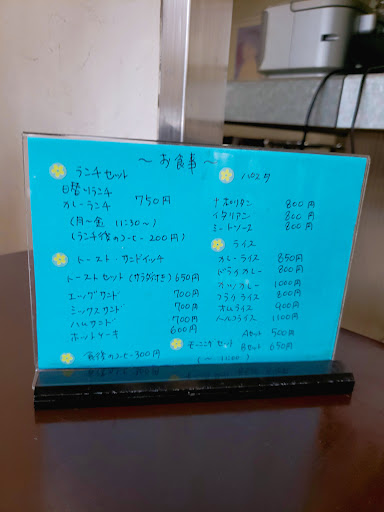 ～ お食事 ～
ランチセット
日替りランチ
カレーランチ 750円
(月～金 11:30～)
(ランチ後のコーヒー 200円)
トースト・サンドイッチ
トーストセット (サラダ付き) 650円
エッグサンド 700円
ミックスサンド 700円
ハムサンド 700円
ホットケーキ 600円
食後のコーヒー 300円
パスタ
ナポリタン 800円
イタリアン 800円
ミートソース 800円
ライス
カレーライス 850円
ドライカレー 800円
カツカレー 1000円
800円
オムライス 900円
ヘルシーライス 1100円
モーニングセット Aセット 500円
Bセット 650円
(～ 11:00)